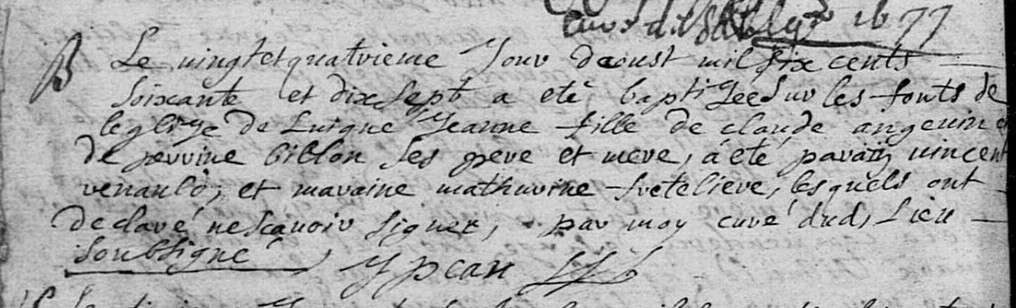 1677
B Le vingtet quatrieme Jour daoust mil six cents
soixante et dix sept a eté baptizée sur les fonts de
leglize de Luigne Jeanne fille de claude angevin et
de perrine billon ses pere et mere, a été parain vincent
renault, et maraine mathurine freteliere, lesquels ont
declaré ne scavoir signer, par moy curé dud. lieu
soubsigné